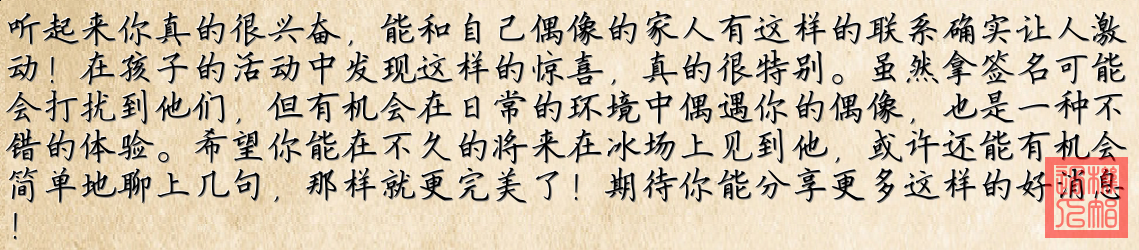 听起来你真的很兴奋，能和自己偶像的家人有这样的联系确实让人激
动！在孩子的活动中发现这样的惊喜，真的很特别。虽然拿签名可能
会打扰到他们，但有机会在日常的环境中偶遇你的偶像，也是一种不
错的体验。希望你能在不久的将来在冰场上见到他，或许还能有机会
简单地聊上几句，那样就更完美了！期待你能分享更多这样的好消息
！